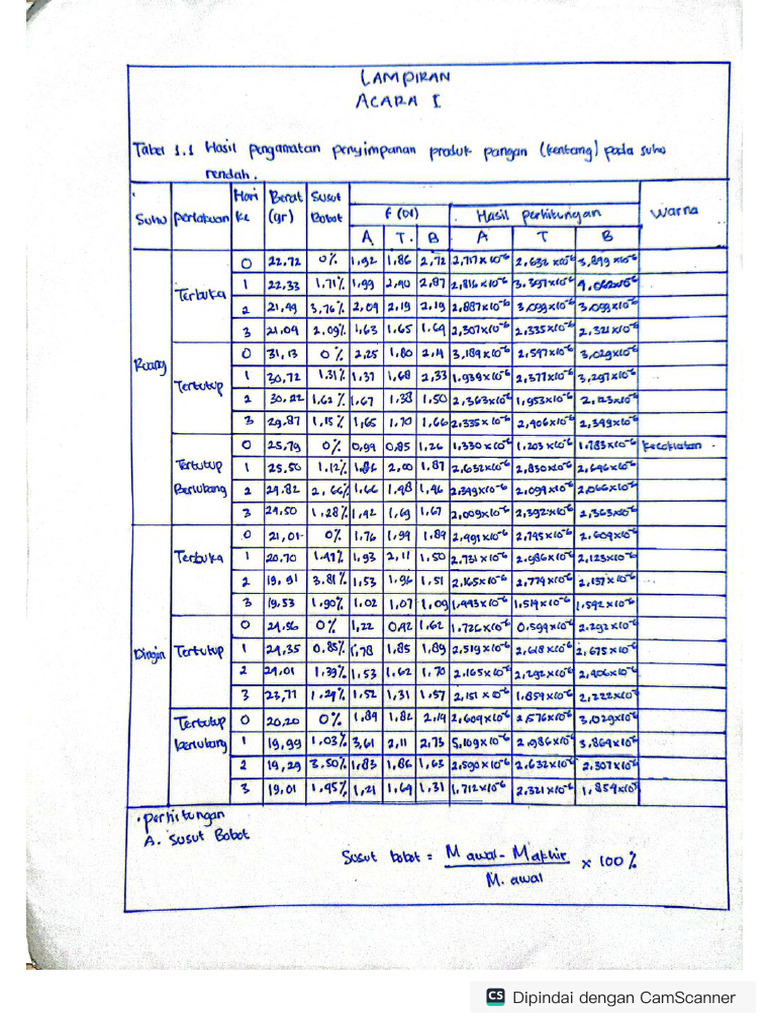 LAMPIRAN
ACARA I
Tabel 1.1 Hasil pengamatan penyimpanan produk pangan (kentang) pada suhu
rendah.
Suhu Perlakuan Hari ke Berat (gr) Susut Bobot F (01) Hasil perhitungan Warna
A T. B A T B
Ruang Terbuka 0 22,72 0% 1,92 1,86 2,72 2,717x10⁻⁶ 2,632 x10⁻⁶ 3,899 x10⁻⁶
1 22,33 1,71% 1,99 2,40 2,87 2,816x10⁻⁶ 3.397x10⁻⁶ 4,062x10⁻⁶
2 21,49 3,76% 2,04 2,19 2,19 2,887x10⁻⁶ 3,099x10⁻⁶ 3,099x10⁻⁶
3 21,04 2.09% 1,63 1.65 1.64 2,307x10⁻⁶ 2,335x10⁻⁶ 2,321x10⁻⁶
Tertutup 0 31,13 0% 2,25 1,80 2,14 3,189x10⁻⁶ 2,547x10⁻⁶ 3,029x10⁻⁶
1 30,72 1.31% 1,37 1,68 2,33 1.939x10⁻⁶ 2,377x10⁻⁶ 3,297x10⁻⁶
2 30,22 1,62% 1,67 1.38 1,50 2,363x10⁻⁶ 1,953x10⁻⁶ 2,123x10⁻⁶
3 29,87 1,15% 1,65 1,70 1,66 2,335x10⁻⁶ 2,406x10⁻⁶ 2,349x10⁻⁶
Tertutup Berlubang 0 25,79 0% 0,94 0,85 1,26 1,330 x10⁻⁶ 1.203 x10⁻⁶ 1.783x10⁻⁶ Kecoklatan
1 25.50 1.12% 1,86 2,00 1,87 2,632x10⁻⁶ 2,830x10⁻⁶ 2,646x10⁻⁶
2 24.82 2,66% 1,66 1,48 1,46 2,349x10⁻⁶ 2,094x10⁻⁶ 2,066x10⁻⁶
3 24,50 1.28% 1,42 1,69 1,67 2,009x10⁻⁶ 2,392x10⁻⁶ 2,363x10⁻⁶
Dingin Terbuka 0 21,01 0% 1,76 1,94 1.84 2,491x10⁻⁶ 2,745x10⁻⁶ 2,604x10⁻⁶
1 20.70 1.47% 1,93 2,11 1,50 2.731x10⁻⁶ 2.986x10⁻⁶ 2,123x10⁻⁶
2 19,91 3.81% 1,53 1,96 1,51 2,165x10⁻⁶ 2,774x10⁻⁶ 2,137x10⁻⁶
3 19,53 1,90% 1,02 1,07 1,09 1,443x10⁻⁶ 1,514x10⁻⁶ 1,542x10⁻⁶
Tertutup 0 24,56 0% 1,22 0,42 1.62 1,726x10⁻⁶ 0,594x10⁻⁶ 2.292x10⁻⁶
1 24,35 0.85% 1,78 1,85 1,89 2,519x10⁻⁶ 2,618x10⁻⁶ 2,675x10⁻⁶
2 24,01 1,39% 1,53 1,62 1,70 2,165x10⁻⁶ 2,292x10⁻⁶ 2,406x10⁻⁶
3 23,71 1.24% 1,52 1,31 1,57 2,151x10⁻⁶ 1,854x10⁻⁶ 2,222x10⁻⁶
Tertutup berlubang 0 20,20 0% 1,84 1,82 2,14 2,604x10⁻⁶ 2,576x10⁻⁶ 3,029x10⁻⁶
1 19,99 1.03% 3,61 2,11 2,73 5,109x10⁻⁶ 2.986x10⁻⁶ 3,864x10⁻⁶
2 19,29 3.50% 1,83 1,86 1,63 2,590x10⁻⁶ 2.632x10⁻⁶ 2,307x10⁻⁶
3 19,01 1,45% 1,21 1,64 1,31 1,712x10⁻⁶ 2.321x10⁻⁶ 1,854x10⁻⁶
• perhitungan
A. Susut Bobot
Susut bobot = M awal - M akhir / M. awal x 100%
CS Dipindai dengan CamScanner